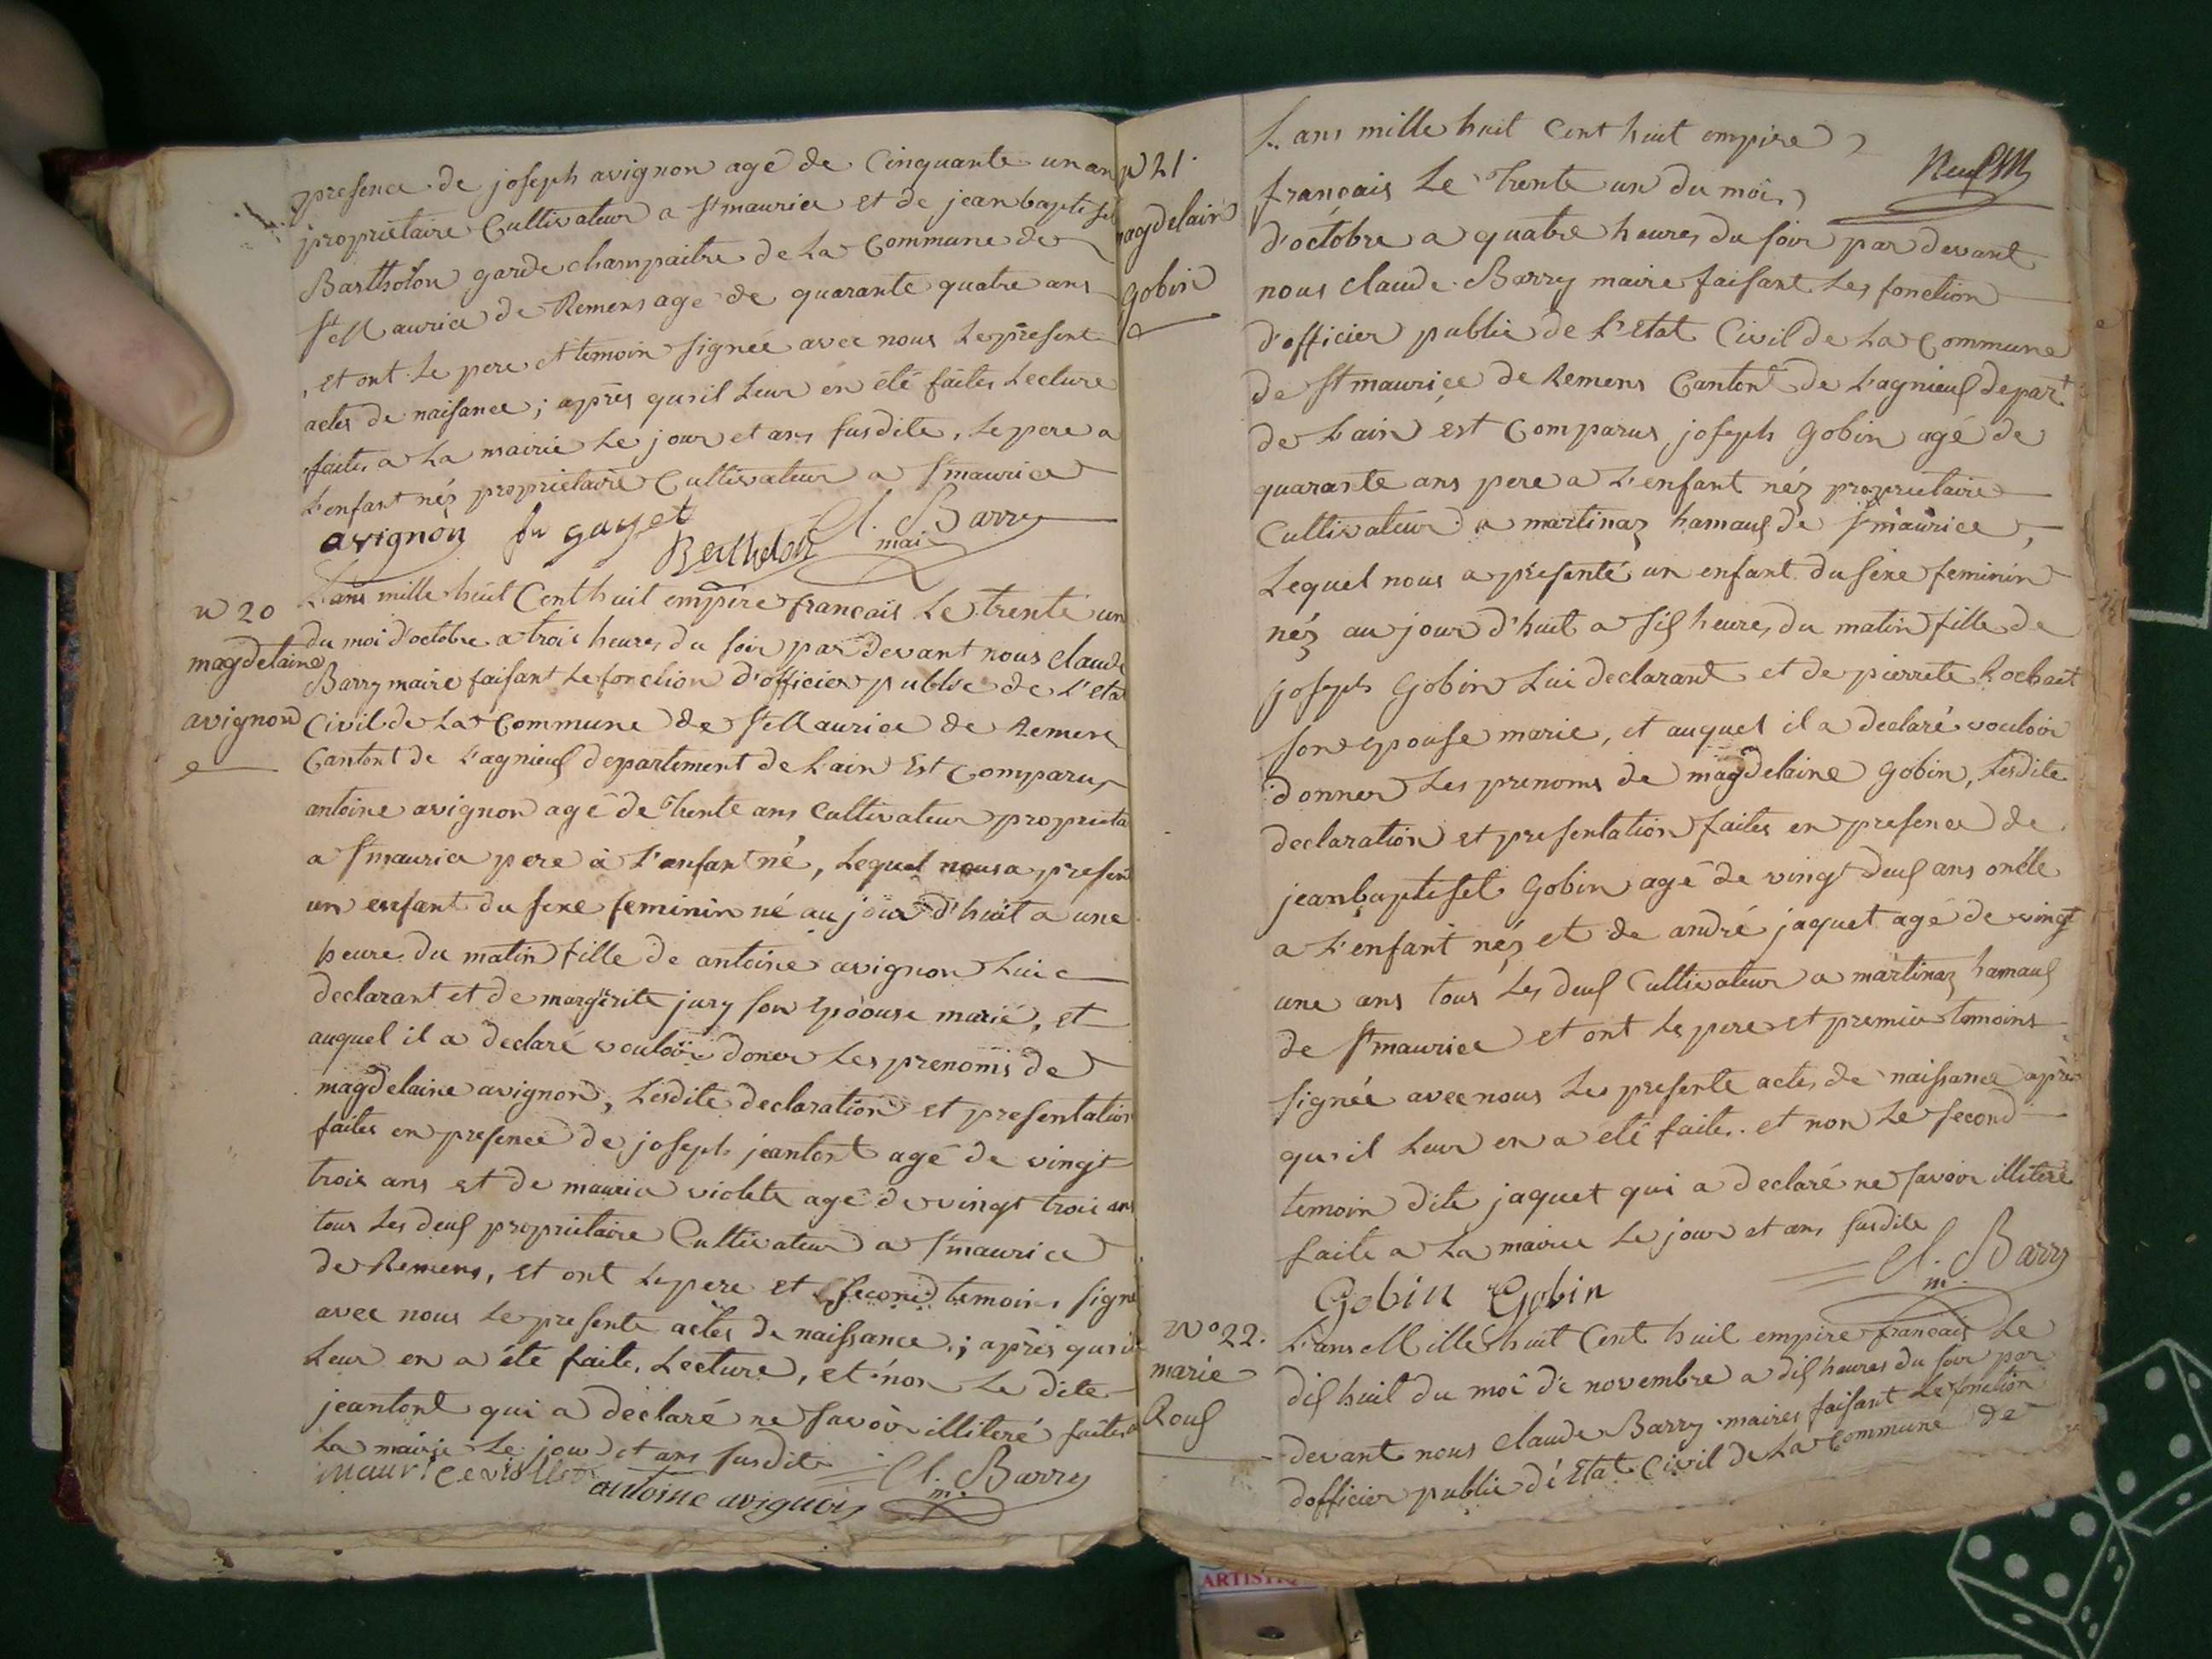 presence de joseph avignon agé de Cinquante un an
proprietaire Cultivateur a St maurice et de jean baptiset
Bartholon garde champaitre de La Commune de
St Maurice de Remens agé de quarante quatre ans
et ont Le pere et temoin signée avec nous Le present
actes de naisance ; après qu'il Leur en été faites Lecture
faites a La mairie Le jour et ans susdite, Le pere a
L'enfant néz proprietaire Cultivateur a St maurice
avignon gayet Cl. Barry
Berthelon mai
n 20
magdelaine
avignon
L'ans mille huit Cent huit empire français Le trente un
du moi d'octobre a trois heures du soir par devant nous Claude
Barry maire faisant Le fonction d'officier public de L'Eta
Civil de La Commune de St Maurice de Remens
Cantont de L'agnieux departement de L'ain Est Comparus
antoine avignon agé de Trente ans Cultivateur proprieta
a St maurice pere à L'enfant né, Lequel nous a presen
un enfant du sexe feminin né au jour d'huit a une
heure du matin fille de antoine avignon Lui
declarant et de margerite jury son Epoouse marié, et
auquel il a declaré vouloir doner Les prenoms de
magdelaine avignon, Lesdite declaration et presentation
faites en presence de joseph jeantont agé de vingt
trois ans et de maurice violete agé de vingt trois ans
tous Les deux proprietaire Cultivateur a St maurice
de Remens, et ont Le pere et second temoins signé
avec nous Le presente actes de naissance ; après qu'il
Leur en a été faite, Lecture, et non Le dite
jeantont qui a déclaré ne savoir illiteré faites a
La mairie Le jour et ans susdite Cl. Barry
maurice violet antoine avignon m.
n 21.
magdelain
Gobin
L'ans mille huit Cent huit empire
français Le Trente un du moi
d'octobre a quatre heures du soir par devant
nous Claude Barry maire faisant Les fonction
d'officier public de L'Etat Civil de La Commune
de St maurice de Remens Canton de L'agnieux depart
de L'ain est Comparus joseph Gobin agé de
quarante ans pere a L'enfant néz proprietaire
Cultivateur a martinaz hamaux de St maurice,
Lequel nous a presenté un enfant du sexe feminin
néz au jour d'huit a six heures du matin fille de
joseph Gobin Lui declarant et de pierrete
son epouse marie, et auquel il a declaré vouloir
donner Les prenoms de magdelaine Gobin, Lesdite
declaration et presentation faites en presence de
jean baptiset Gobin agé de vingt deux ans oncle
a L'enfant néz et de andré jaquet agé de vingt
une ans tous Les deux Cultivateur a martinaz hamaux
de St maurice et ont Le pere et premier temoins
signée avec nous Les presente actes de naissance après
qu'il Leur en a été faites et non Le second
temoin dite jaquet qui a declaré ne savoir illiteré
faite a La mairie Le jour et ans susdite
Gobin Gobin Cl. Barry
m.
No 22.
marie
Roux
L'ans Mille huit Cent huit empire français Le
dix huit du moi de novembre a dix heures du soir par
devant nous Claude Barry maires faisant Le fonction
dofficier public d'Etat Civil de La Commune de
ARTIST